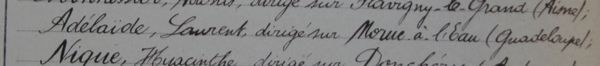 dirigé sur Flavigny-le-Grand (Aisne);
Adélaïde, Laurent, dirigé sur Morne-à-l'Eau (Guadeloupe);
Nique, Hyacinthe dirigé sur